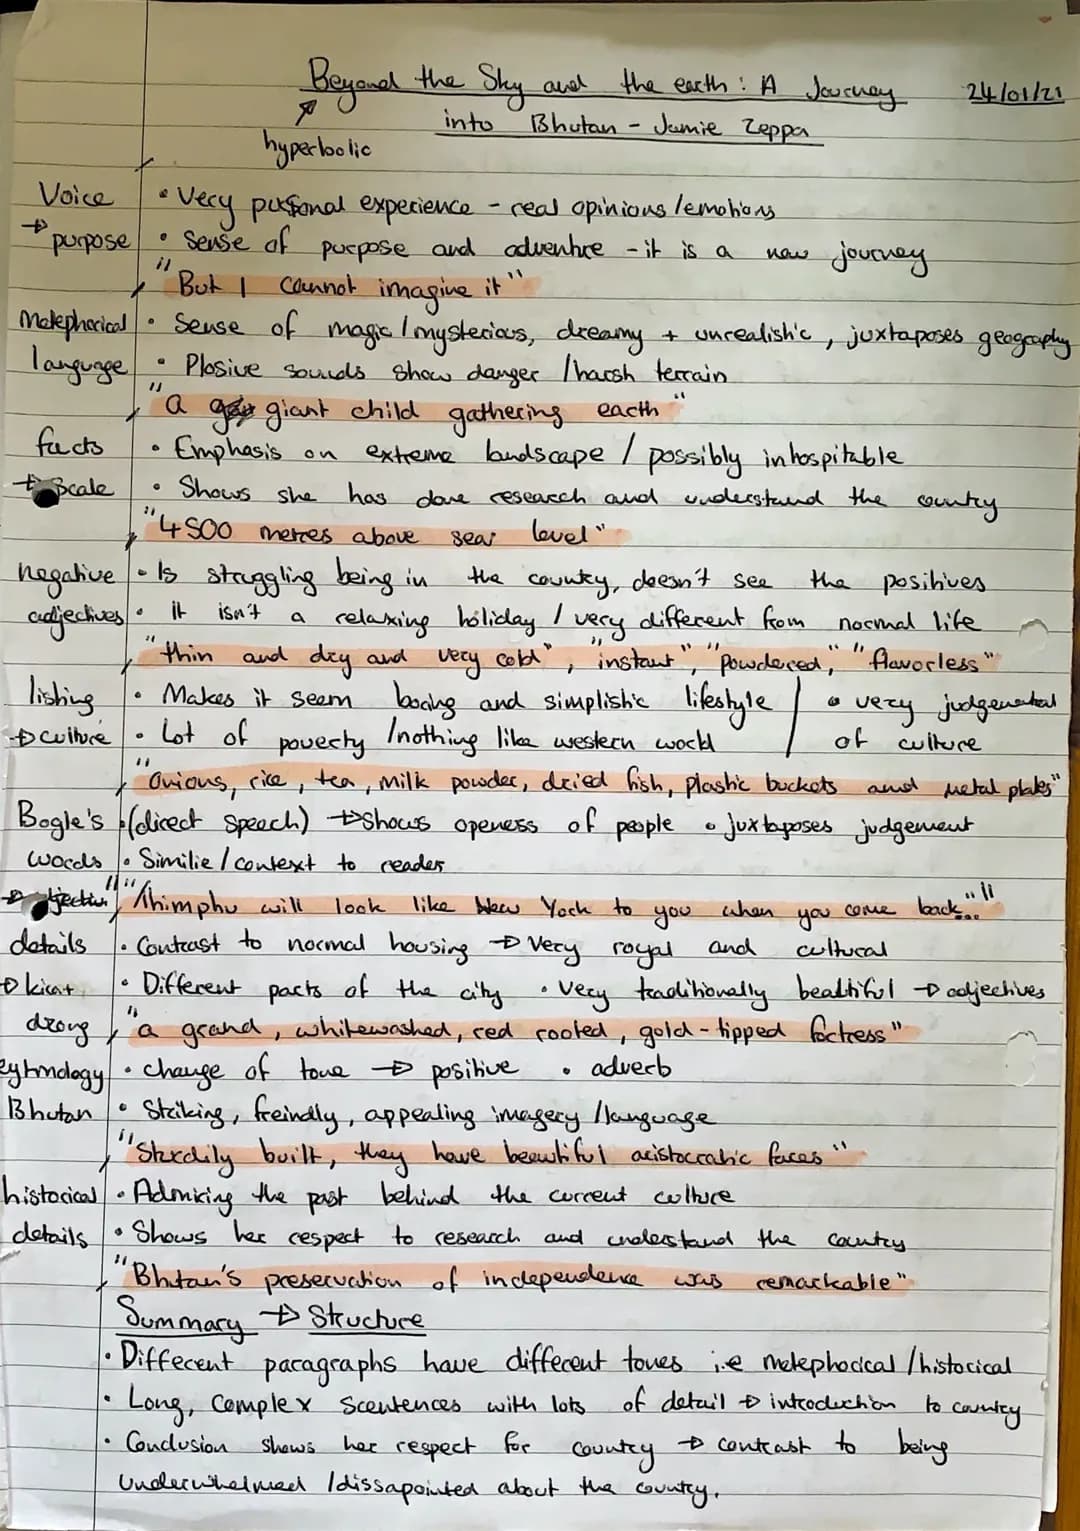 Beyond the Sky and the earth : A Journey 24/01/21
into Bhutan - Jamie Zeppa
hyperbolic
Voice • Very personal experience - real opinions / emotions
→ purpose • Sense of purpose and adventure - it is a new journey
"But I cannot imagine it"
Metephorical • Sense of magic / mysterious, dreamy + unrealistic, juxtaposes geography
language • Plosive sounds show danger / harsh terrain
"a giant child gathering earth"
facts • Emphasis on extreme landscape / possibly inhospitable
→ Scale • Shows she has done research and understand the country
"4500 metres above sea level"
negative • Is struggling being in the country, doesn't see the positives
adjectives • it isn't a relaxing holiday / very different from normal life
"thin and dry and very cold", "instant", "powdered," "flavorless"
listing • Makes it seem boring and simplistic lifestyle / • very judgemental
→ culture • Lot of poverty / nothing like western world / of culture
"Onions, rice, tea, milk powder, dried fish, plastic buckets and metal plates"
Bogle's • (direct speech) → shows openess of people • juxtaposes judgement
words • Similie / context to reader
"“Thimphu will look like New York to you when you come back..."”
details • Contrast to normal housing → Very royal and cultural
→ kicat • Different parts of the city • Very traditionally beautiful → adjectives
dzong "a grand, whitewashed, red rooted, gold-tipped fortress"
eytmology • change of tone → positive • adverb
Bhutan • Striking, freindly, appealing imagery / language
"Sturdily built, they have beautiful aristocratic faces"
historical • Admiring the past behind the current culture
details • Shows her respect to research and understand the country
"Bhtan's preservation of independence was remarkable"
Summary → Structure
• Different paragraphs have different tones i.e metephorical / historical
• Long, Complex Scentences with lots of detail → introduction to country
• Conclusion shows her respect for country → contrast to being
underwhelmed / dissapointed about the country.